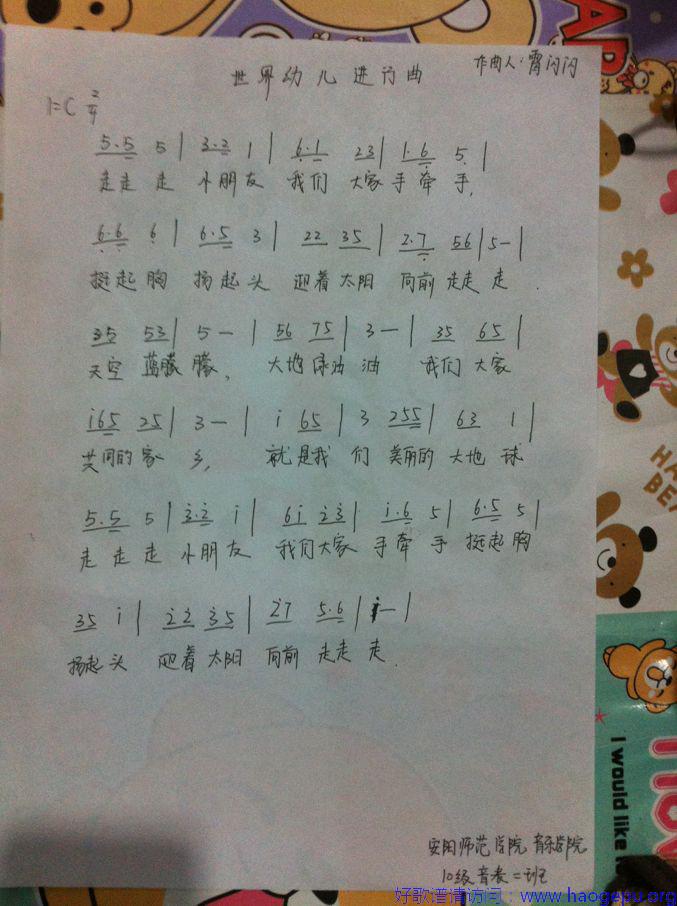 世界幼儿进行曲 作曲人:霄闪闪
1=C 2/4
5.5 5 | 3.2 1 | 6.1 23 | 1.6 5 |
走走 走 小朋友 我们 大家 手牵 手,
6.6 6 | 6.5 3 | 22 35 | 2.7 56 | 5— |
挺起 胸 扬起 头 迎着 太阳 向前 走走 走.
35 53 | 5— | 56 75 | 3— | 35 65 |
天空 蓝朦 朦, 大地 绿油 油 我们 大家
i65 25 | 3— | i 65 | 3 255 | 63 1 |
共同的 家 乡, 就 是我 们 美丽的 大地 球
5.5 5 | 3.2 i | 6i 23 | i.6 5 | 6.5 5 |
走 走 走 小朋友 我们大家 手牵 手 挺起 胸
35 i | 22 35 | 27 5.6 | i— |
扬起 头 迎着 太阳 向前 走走 走.
安阳师范学院 音乐学院
10级音表二班
好歌谱请访问:www.haogepu.org
AR
HA
BE
I would like